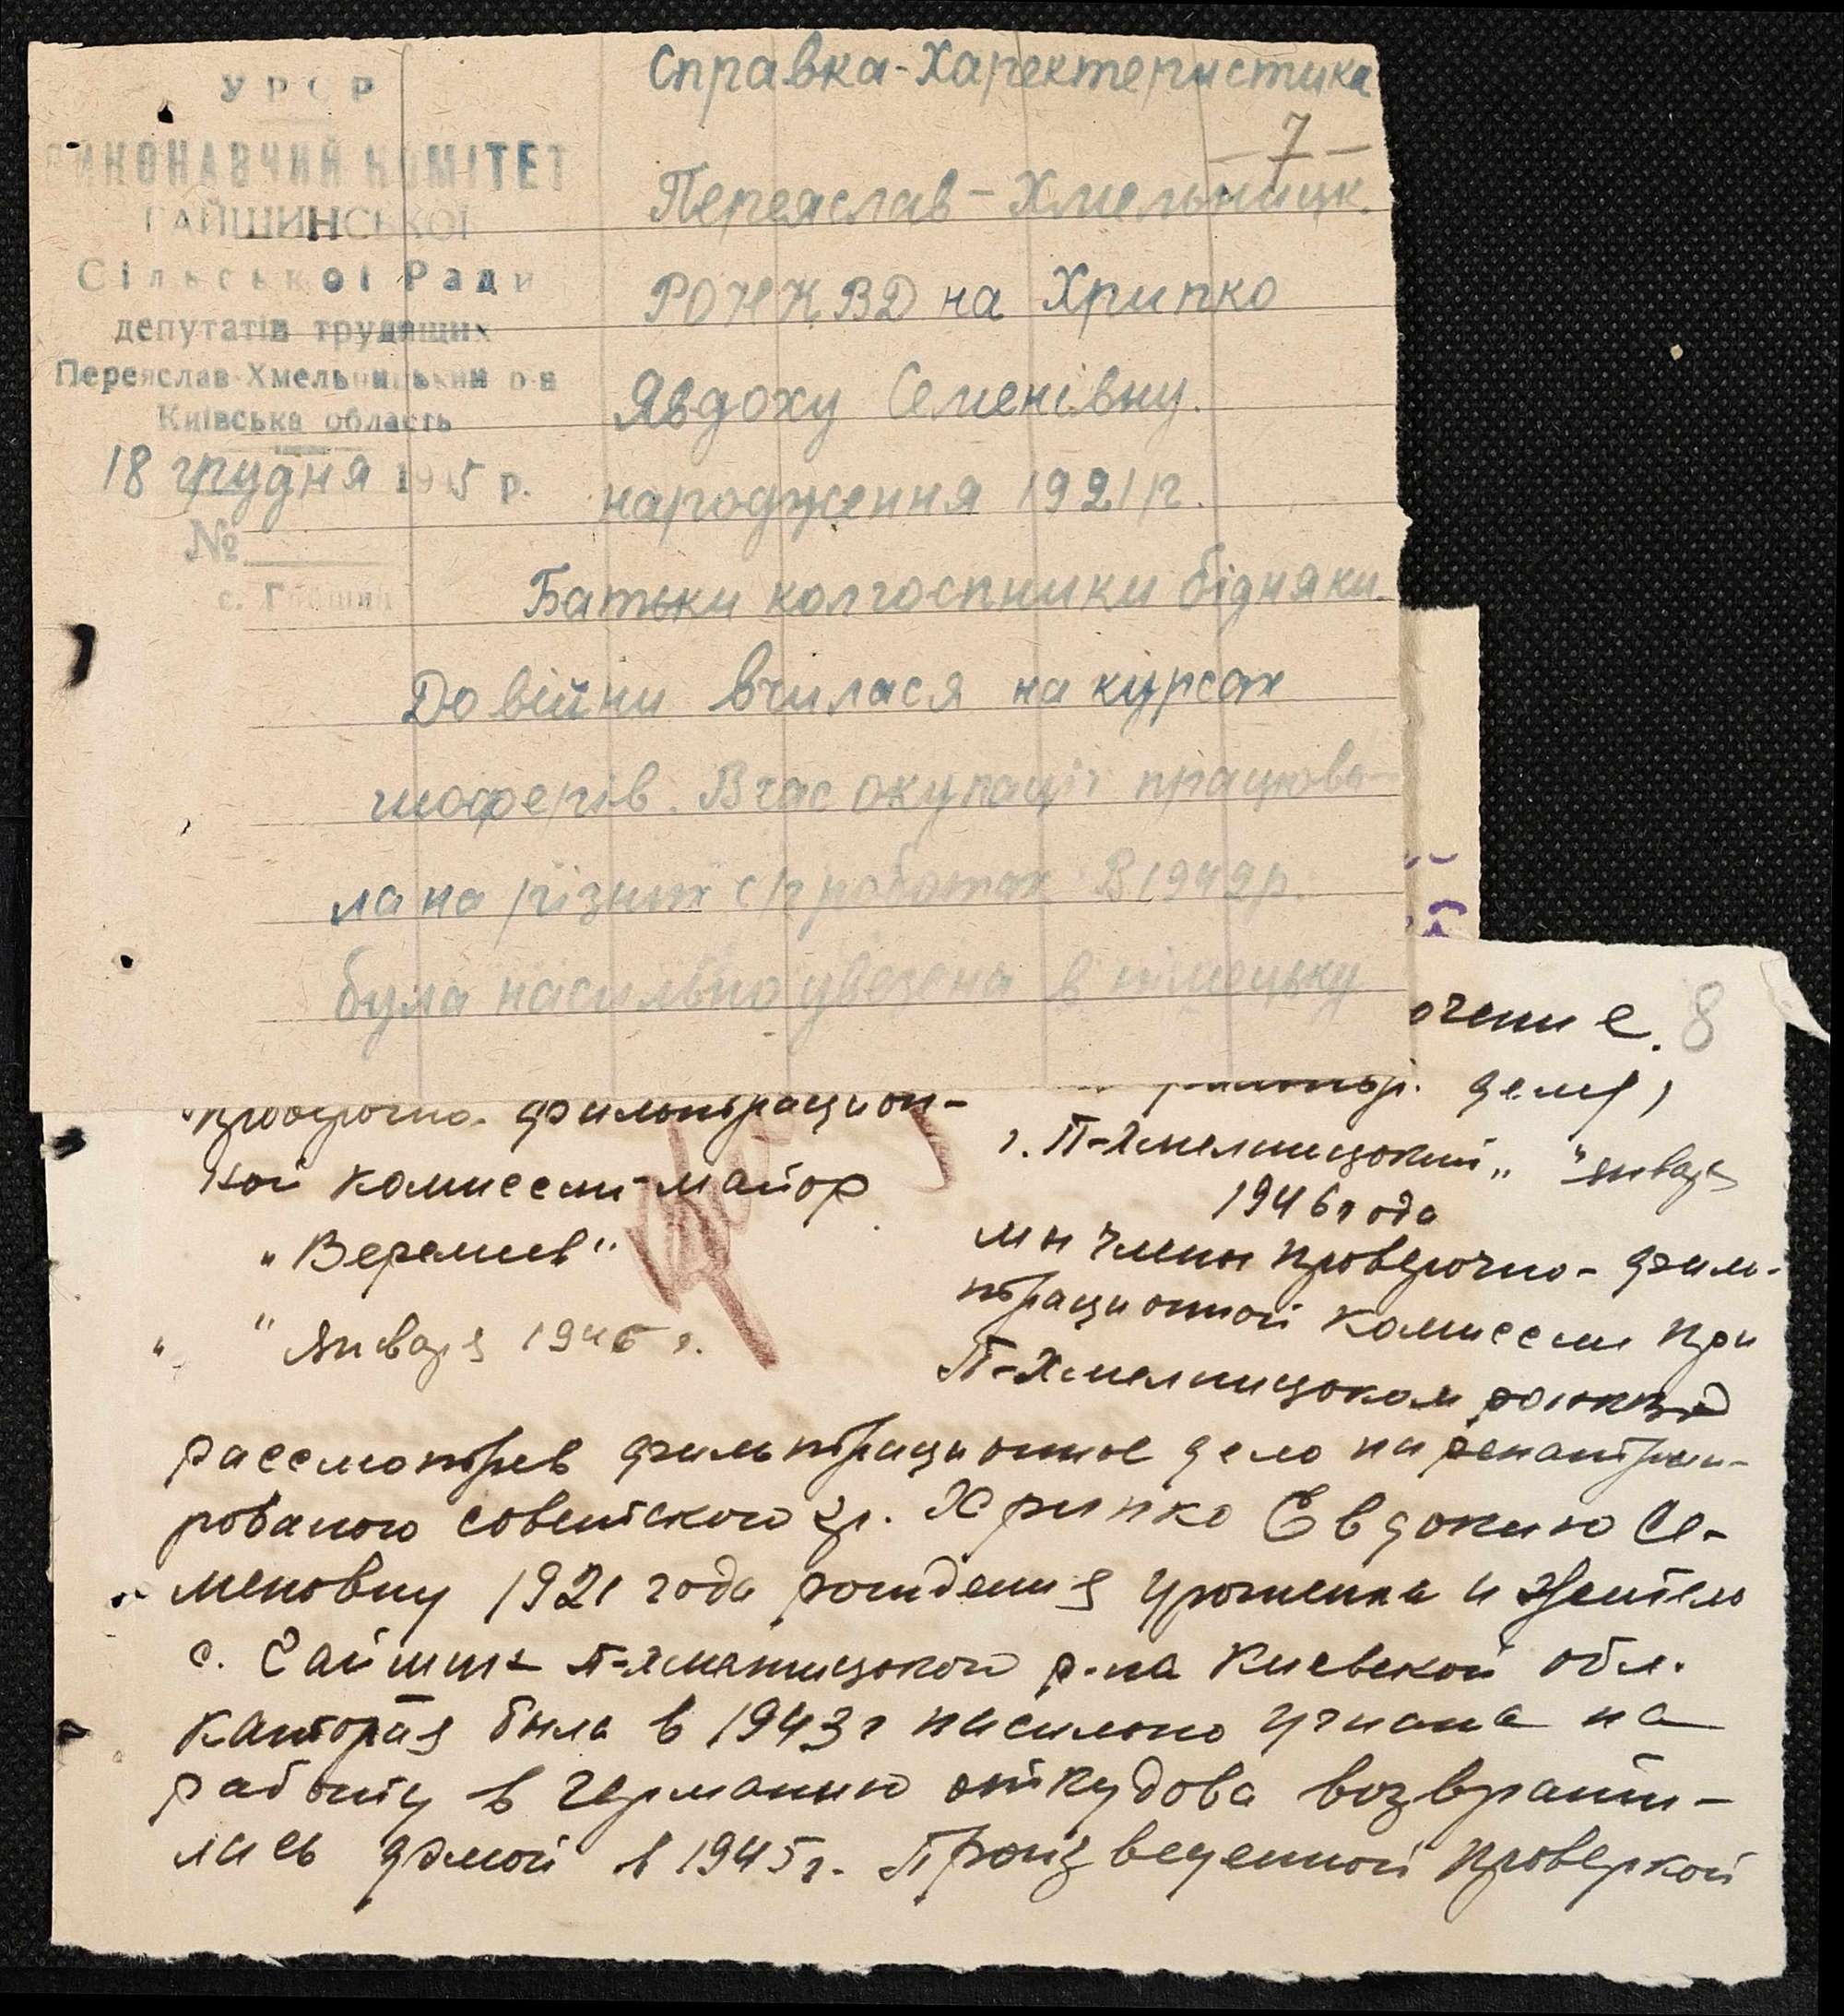 УРСР
ВИКОНАВЧИЙ КОМІТЕТ
ГАЙШИНСЬКОЇ
Сільської Ради
депутатів трудящих
Переяслав-Хмельницький р-н
Київська область
18 грудня 1945 р.
№
с. Гайшин
Справка-Характеристика
7
Переяслав-Хмельницьк.
РОНКВД на Хрипко
Явдоху Семенівну.
народження 1921 р.
Батьки колгоспники бідняки.
До війни вчилася на курсах
шоферів. В час окупації працюва-
ла на різних с/г роботах. В 1942 р.
була насильно увезена в німецьку
очение.
8
проверочно-фильтрацион-
ной комиссии майор
"Веремиев"
" " января 1946 г.
фильтр. делу)
г. П-Хмелницкий " " января
1946 года
мы члены проверочно-филь-
трационной комиссии при
П-Хмелницком РОНКВД
рассмотрев фильтрационное дело на репатрии-
рованого советского гр. Хрипко Евдокию Се-
меновну 1921 года рождения уроженка и житель
с. Гайшин П-Хмелницкого р-на Киевской обл.
каторая была в 1943 г насильно угнана на
работу в германию откудова возврати-
лась домой в 1945 г. Произведенной проверкой